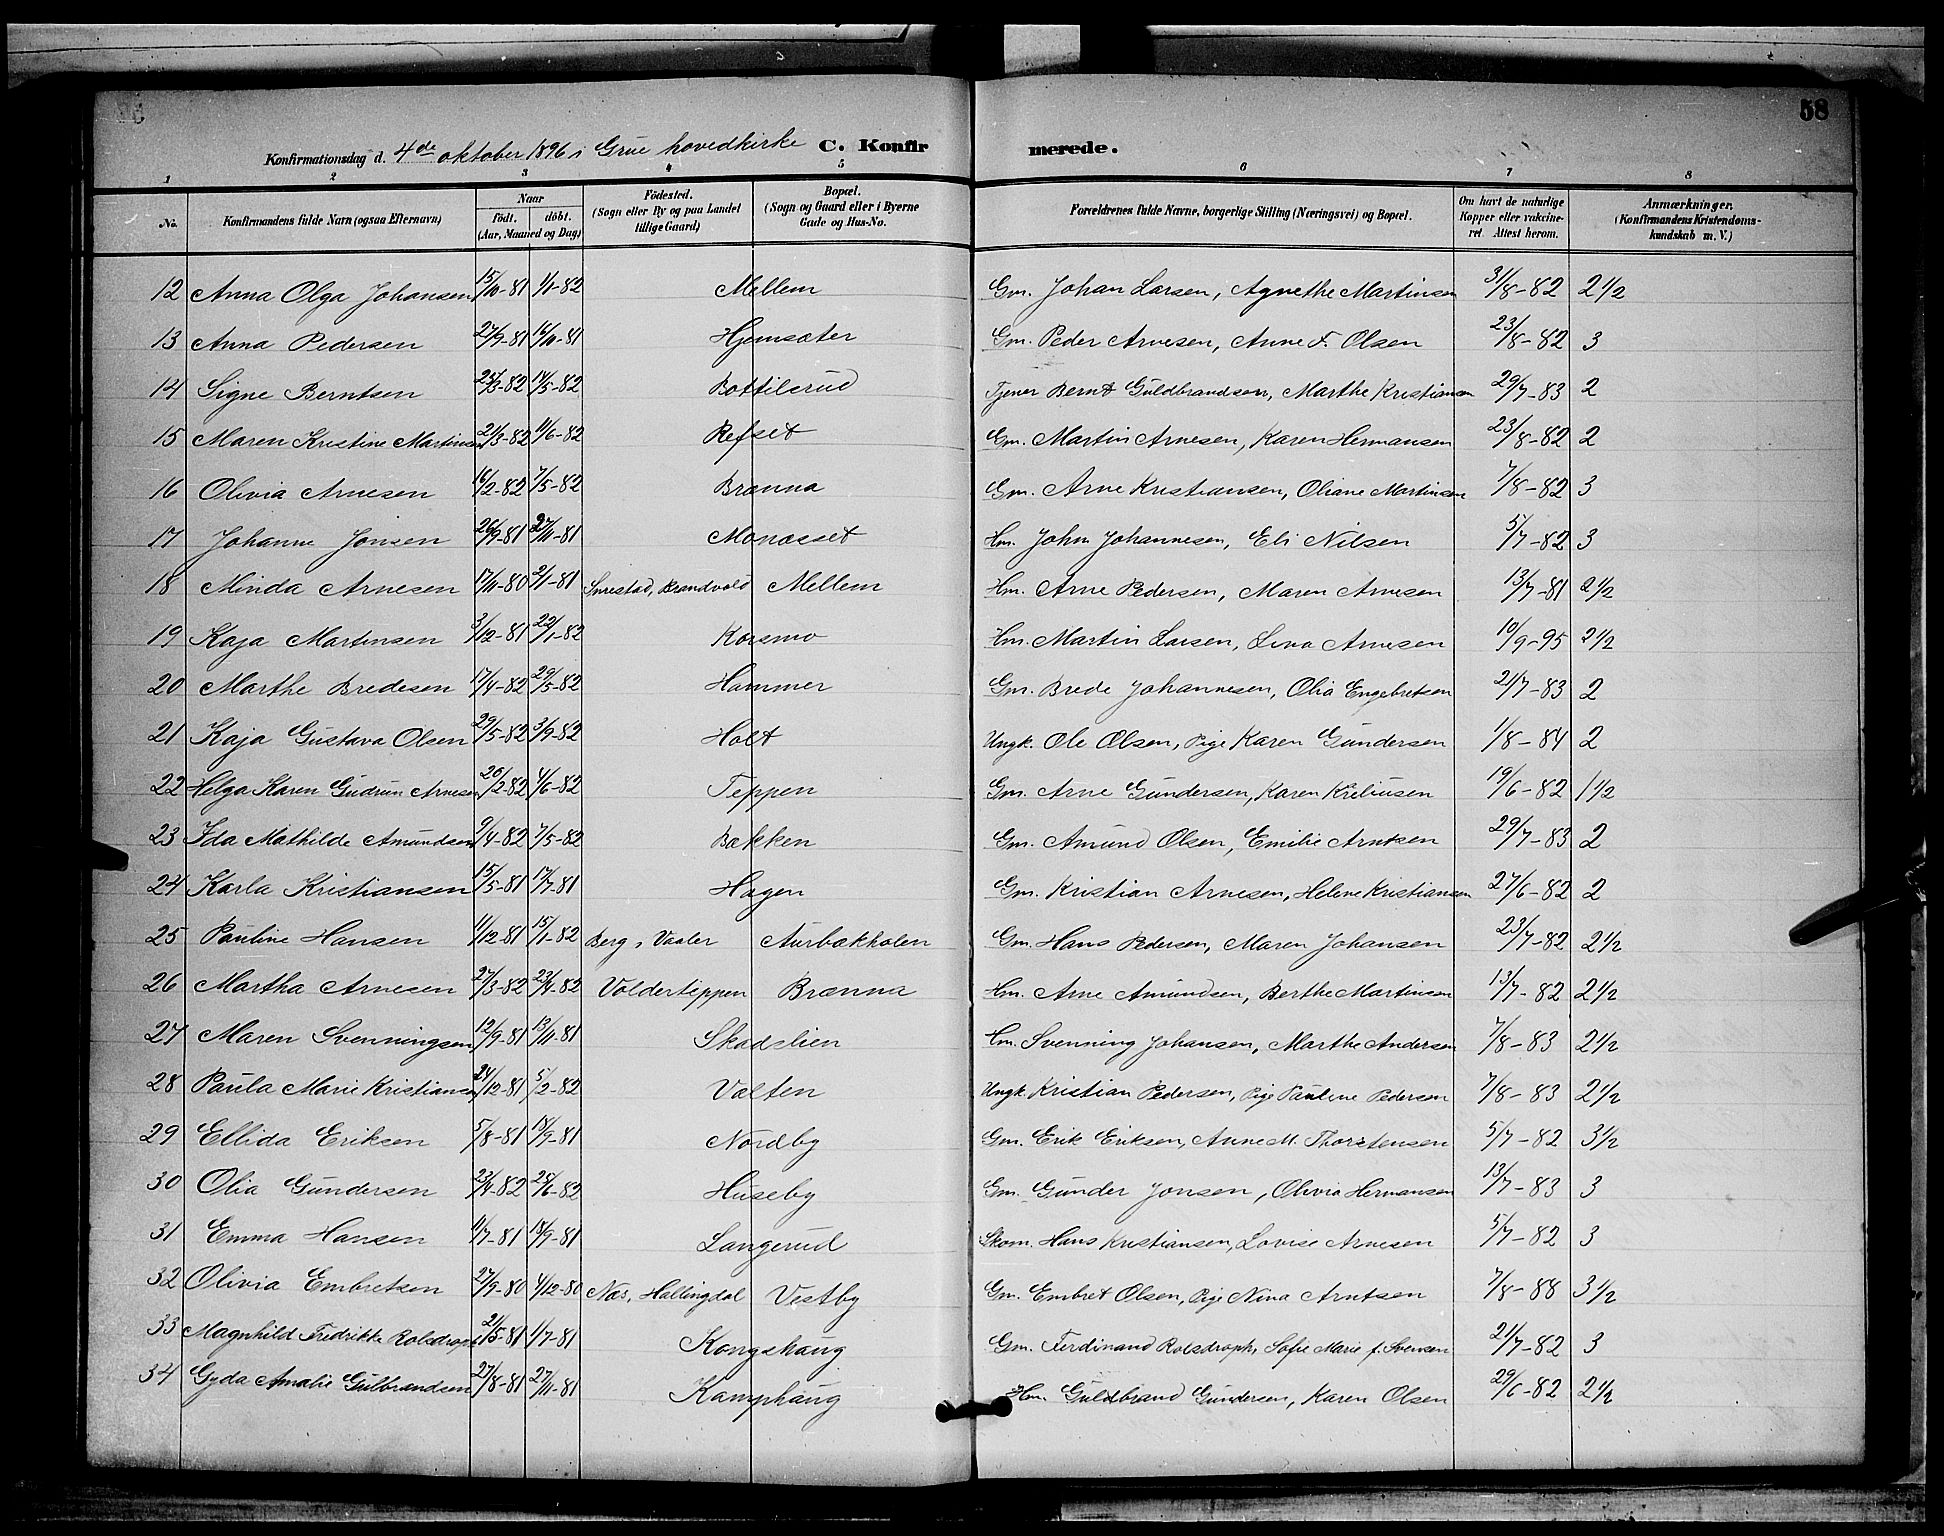 58
Konfirmationsdag d. 4de oktober 1896 i Grue hovedkirke C. Konfirmerede.
1 2 3 4 5 6 7 8
No. Konfirmandens fulde Navn (ogsaa Efternavn) Naar født. døbt. (Aar, Maaned og Dag) Fødested. (Sogn eller By og paa Landet tillige Gaard) Bopæl. (Sogn og Gaard eller i Byerne Gade og Hus-No. Forældrenes fulde Navne, borgerlige Stilling (Næringsvei) og Bopæl. Om havt de naturlige Kopper eller vakcineret. Attest herom. Anmærkninger. (Konfirmandens Kristendomskundskab m. V.)
12 Anna Olga Johansen 15/10-81 1/1-82 Mellem Gm. Johan Larsen, Agnethe Martinsen 31/8-82 2 1/2
13 Anna Pedersen 27/9-81 16/10-81 Hjemsæter Gm. Peder Arnesen, Anne F. Olsen 23/8-82 3
14 Signe Berntsen 28/3-82 14/5-82 Bottilsrud Tjener Bernt Guldbrandsen, Marthe Kristiansen 29/7-83 2
15 Maren Kristine Martinsen 21/3-82 11/6-82 Refset Gm. Martin Arnesen, Karen Hermansen 23/8-82 2
16 Olivia Arnesen 16/2-82 7/5-82 Brænna Gm. Arne Kristiansen, Oliane Martinsen 7/8-82 3
17 Johanne Jonsen 26/9-81 27/11-81 Monasset Hm. John Johannesen, Eli Nilsen 5/7-82 3
18 Minda Arnesen 17/11-80 2/1-81 Surestad, Brandvold Mellem Hm. Arne Pedersen, Maren Arnesen 13/7-81 2 1/2
19 Kaja Martinsen 3/12-81 22/1-82 Korsmo Hm. Martin Larsen, Lina Arnesen 10/9-95 2 1/2
20 Marthe Bredesen 17/4-82 29/5-82 Hammer Gm. Brede Johannesen, Olia Engebretsen 21/7-83 2
21 Kaja Gustava Olsen 29/5-82 3/9-82 Holt Ungk. Ole Olsen, Pige Karen Gundersen 1/8-84 2
22 Helga Karen Gudrun Arnesen 20/2-82 4/6-82 Teppen Gm. Arne Gundersen, Karen Kreliusen 19/6-82 1 1/2
23 Ida Mathilde Amundsen 9/4-82 7/5-82 Bækken Gm. Amund Olsen, Emilie Arntsen 29/7-83 2
24 Karla Kristiansen 15/5-81 17/7-81 Hagen Gm. Kristian Arnesen, Helene Kristiansen 27/6-82 2
25 Pauline Hansen 11/12-81 15/1-82 Berg, Vaaler Aurbækholen Gm. Hans Pedersen, Maren Johansen 23/7-82 2 1/2
26 Martha Arnesen 27/3-82 23/4-82 Voldertippen Brænna Hm. Arne Amundsen, Berthe Martinsen 13/7-82 2 1/2
27 Maren Svenningsen 12/9-81 13/11-81 Skadslien Hm. Svenning Johansen, Marthe Andersen 7/8-83 2 1/2
28 Paula Marie Kristiansen 24/12-81 5/2-82 Vælten Ungk. Kristian Pedersen, Pige Pauline Pedersen 7/8-83 2 1/2
29 Ellida Eriksen 5/8-81 18/9-81 Nordby Gm. Erik Eriksen, Anne M. Thorstensen 5/7-82 3 1/2
30 Olia Gundersen 23/4-82 28/6-82 Huseby Gm. Gunder Jonsen, Olivia Hermansen 13/7-83 3
31 Emma Hansen 11/7-81 18/9-81 Langerud Skom. Hans Kristiansen, Lovise Arnesen 5/7-82 3
32 Olivia Embretsen 27/9-80 4/12-80 Næs, Hallingdal Vestby Gm. Embret Olsen, Pige Nina Arntsen 7/8-88 3 1/2
33 Magnhild Fredrikke Rolsdroph 21/5-81 1/7-81 Kongshaug Gm. Ferdinand Rolsdroph, Sofie Marie f. Svensen 21/7-82 3
34 Gyda Amalie Gulbrandsen 27/8-81 27/11-81 Kamphaug Hm. Guldbrand Gundersen, Karen Olsen 29/6-82 2 1/2